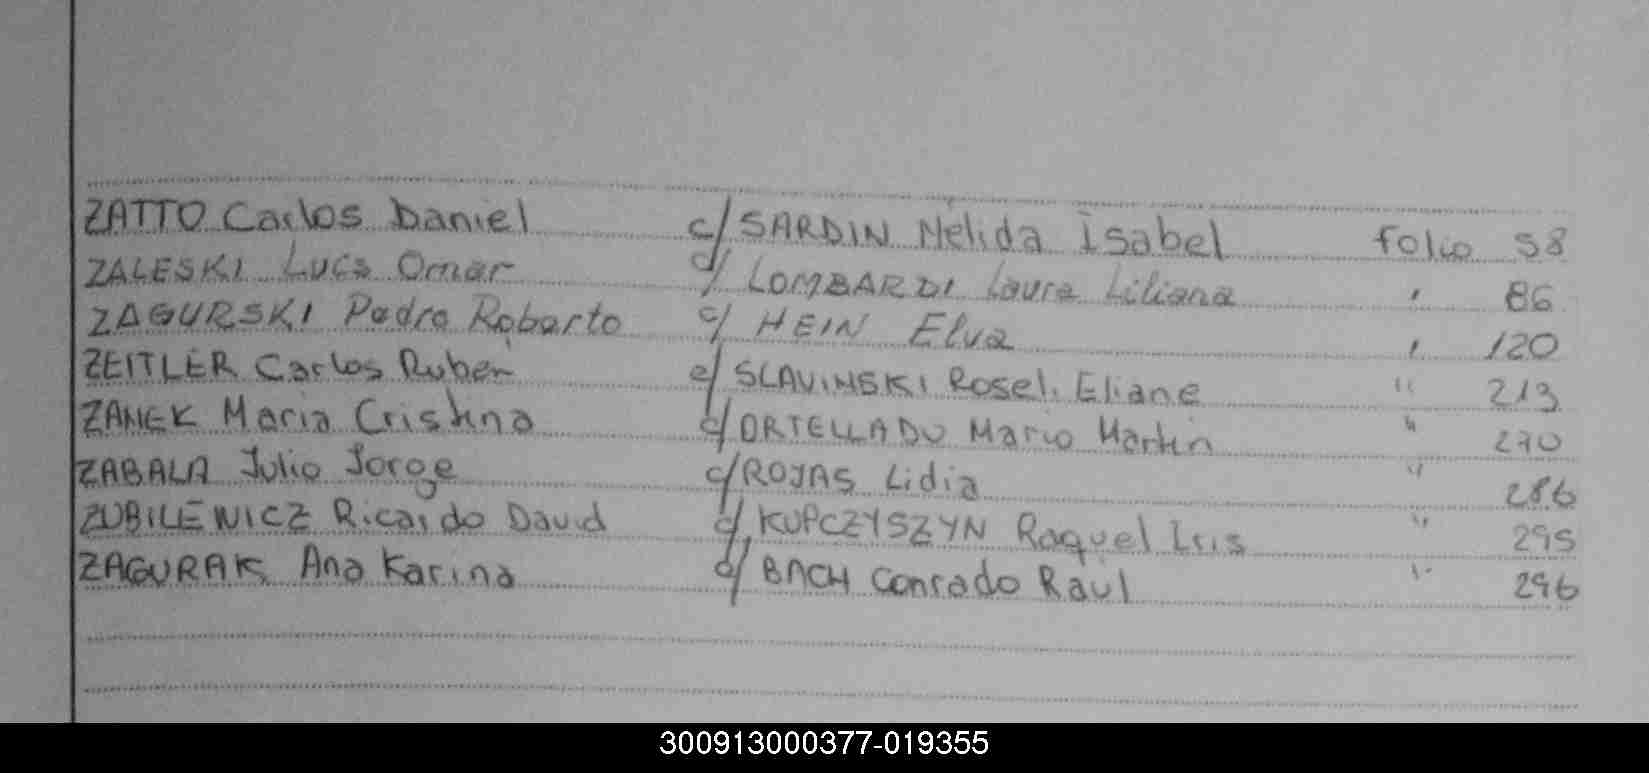 ZATTO Carlos Daniel c/ SARDIN Nélida Isabel folio 58
ZALESKI Luis Omar c/ LOMBARDI Laura Liliana " 86
ZAGURSKI Pedro Roberto c/ HEIN Elva " 120
ZEITLER Carlos Ruben c/ SLAVINSKI Rosel. Eliane " 213
ZANEK Maria Cristina c/ ORTELLADO Mario Martin " 270
ZABALA Julio Jorge c/ ROJAS Lidia " 286
ZUBILEWICZ Ricardo David c/ KUPCZYSZYN Raquel Iris " 295
ZAGURAK Ana Karina c/ BACH Conrado Raúl " 296
300913000377-019355